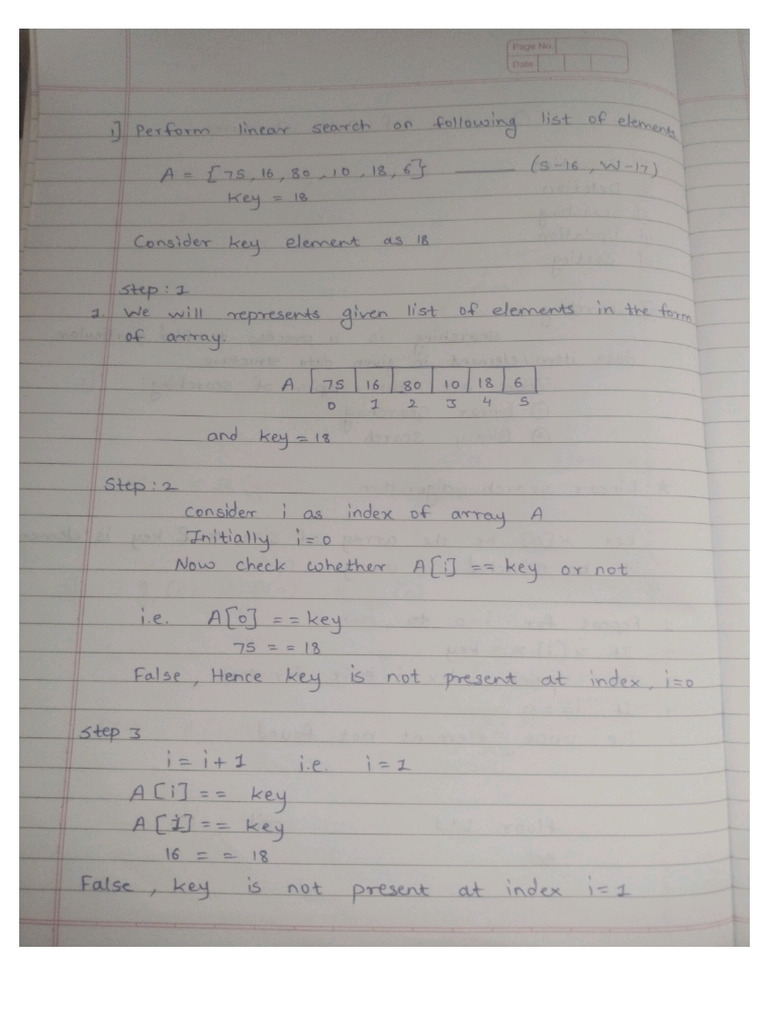 Page No.
Date
1] Perform linear search on following list of elements
A = {75, 16, 80, 10, 18, 6} —— (S-16, W-17)
Key = 18
Consider key element as 18
Step : 1
1. We will represents given list of elements in the form
of array.
A 75 16 80 10 18 6
0 1 2 3 4 5
and key = 18
Step : 2
consider i as index of array A
Initially i = 0
Now check whether A[i] == key or not
i.e. A[0] == key
75 == 18
False, Hence key is not present at index, i=0
Step 3
i = i + 1 i.e. i = 1
A[i] == key
A[1] == key
16 == 18
False, key is not present at index i=1